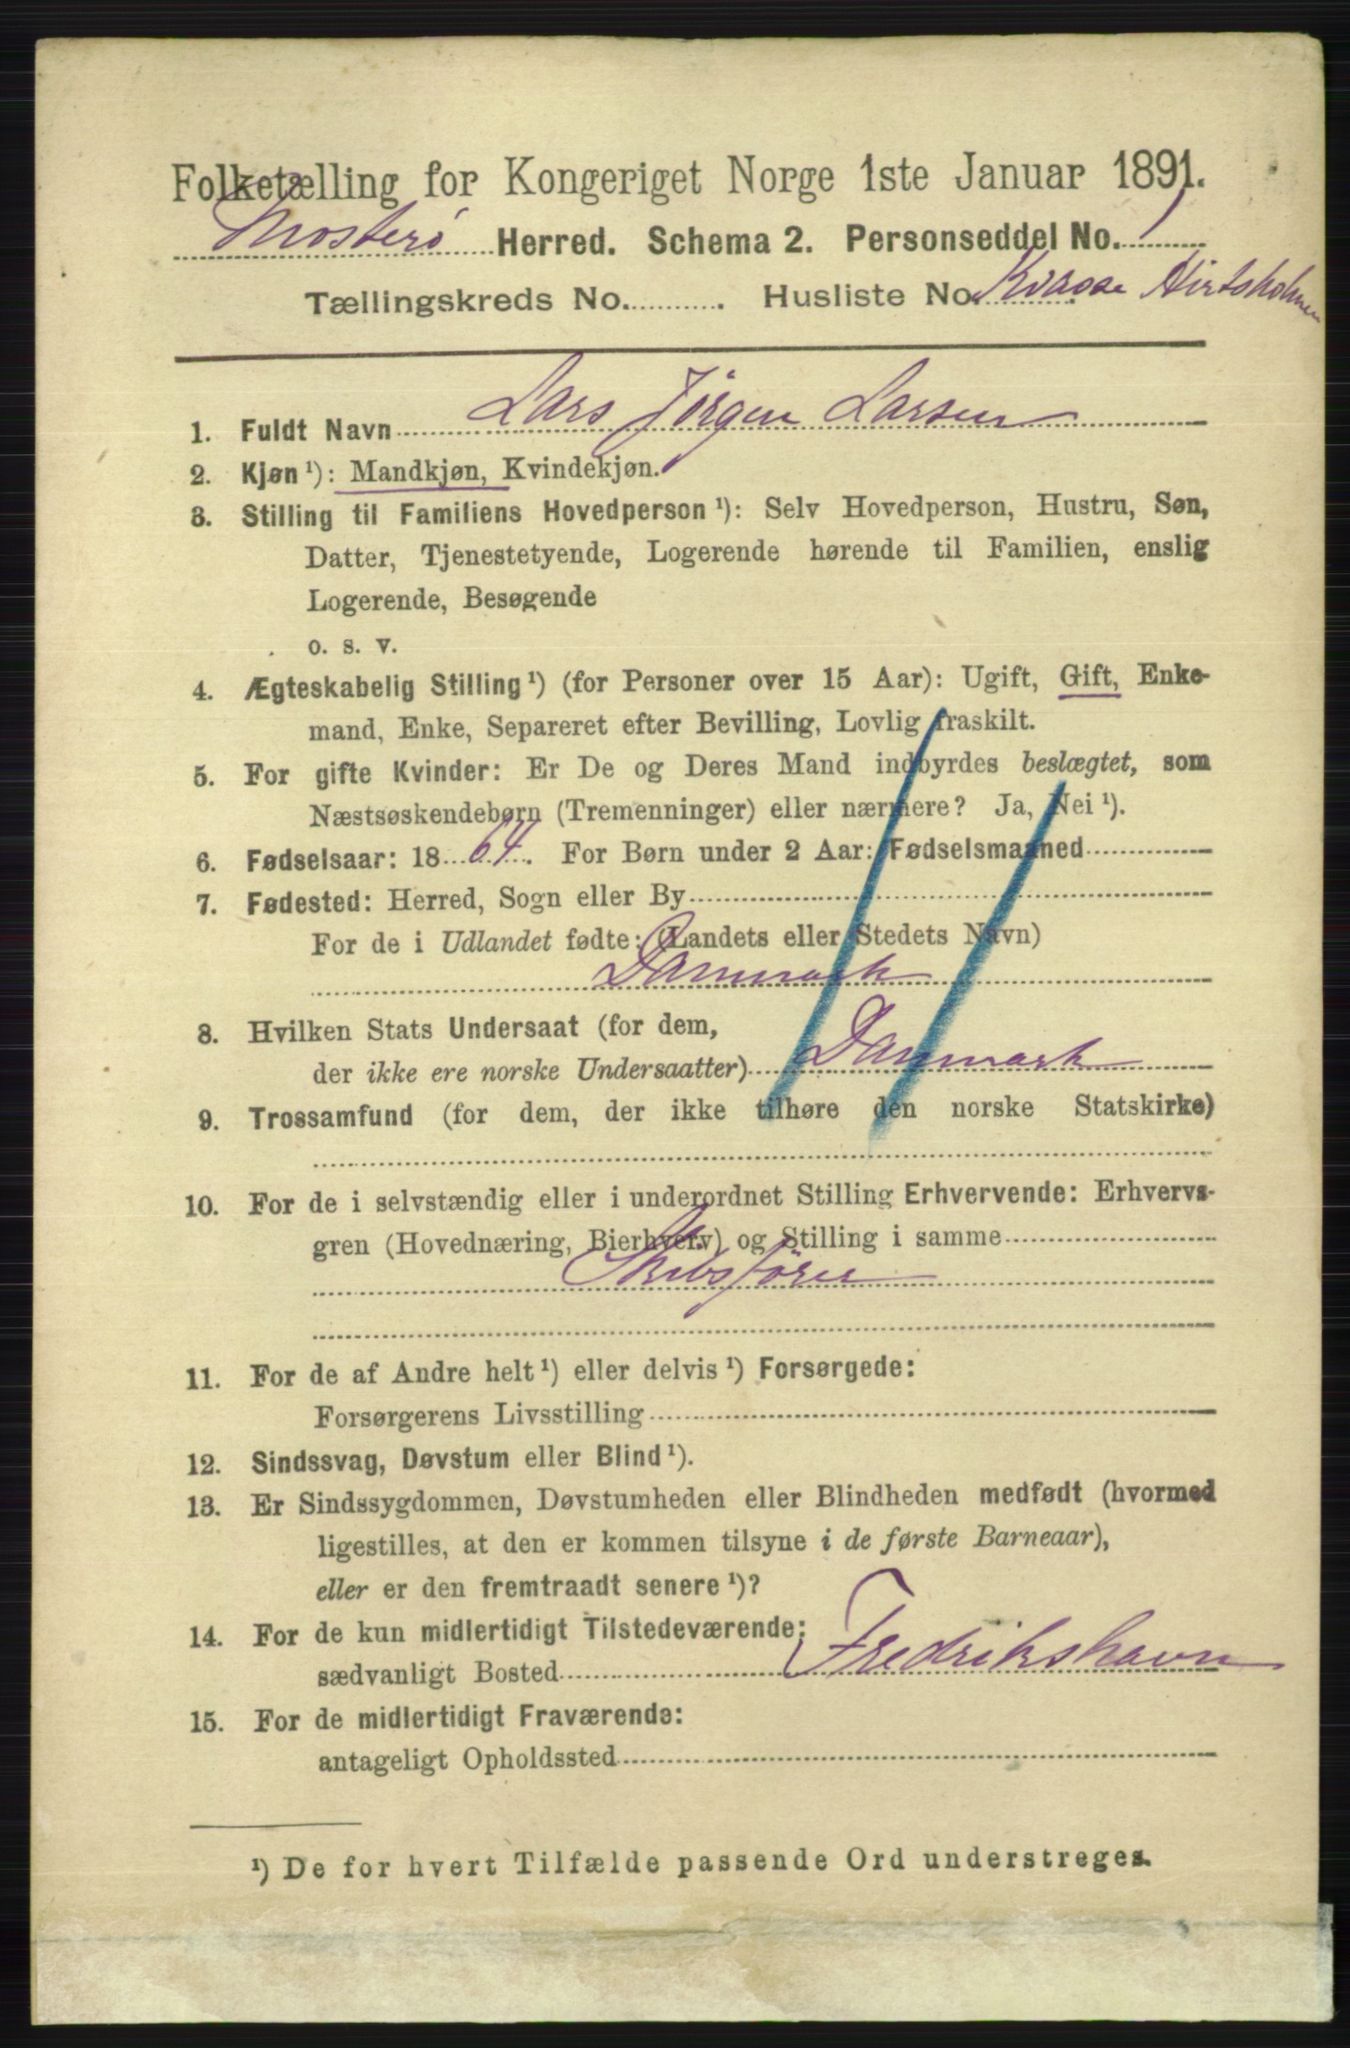 Folketælling for Kongeriget Norge 1ste Januar 1891.
Mosterø Herred. Schema 2. Personseddel No. 1
Tællingskreds No. . Husliste No. Kvasse Hirtsholmen
1. Fuldt Navn Lars Jörgen Larsen
2. Kjøn ¹): Mandkjøn, Kvindekjøn.
3. Stilling til Familiens Hovedperson ¹): Selv Hovedperson, Hustru, Søn,
Datter, Tjenestetyende, Logerende hørende til Familien, enslig
Logerende, Besøgende
o. s. v.
4. Ægteskabelig Stilling ¹) (for Personer over 15 Aar): Ugift, Gift, Enke-
mand, Enke, Separeret efter Bevilling, Lovlig fraskilt.
5. For gifte Kvinder: Er De og Deres Mand indbyrdes beslægtet, som
Næstsøskendebørn (Tremenninger) eller nærmere? Ja, Nei ¹).
6. Fødselsaar: 18 64. For Børn under 2 Aar: Fødselsmaaned
7. Fødested: Herred, Sogn eller By
For de i Udlandet fødte: (Landets eller Stedets Navn)
Danmark
8. Hvilken Stats Undersaat (for dem,
der ikke ere norske Undersaatter) Danmark
9. Trossamfund (for dem, der ikke tilhøre den norske Statskirke)
10. For de i selvstændig eller i underordnet Stilling Erhvervende: Erhvervs-
gren (Hovednæring, Bierhverv) og Stilling i samme
Skibsförer
11. For de af Andre helt ¹) eller delvis ¹) Forsørgede:
Forsørgerens Livsstilling
12. Sindssvag, Døvstum eller Blind ¹).
13. Er Sindssygdommen, Døvstumheden eller Blindheden medfødt (hvormed
ligestilles, at den er kommen tilsyne i de første Barneaar),
eller er den fremtraadt senere ¹)?
14. For de kun midlertidigt Tilstedeværende:
sædvanligt Bosted Fredrikshavn
15. For de midlertidigt Fraværende:
antageligt Opholdssted
¹) De for hvert Tilfælde passende Ord understreges.